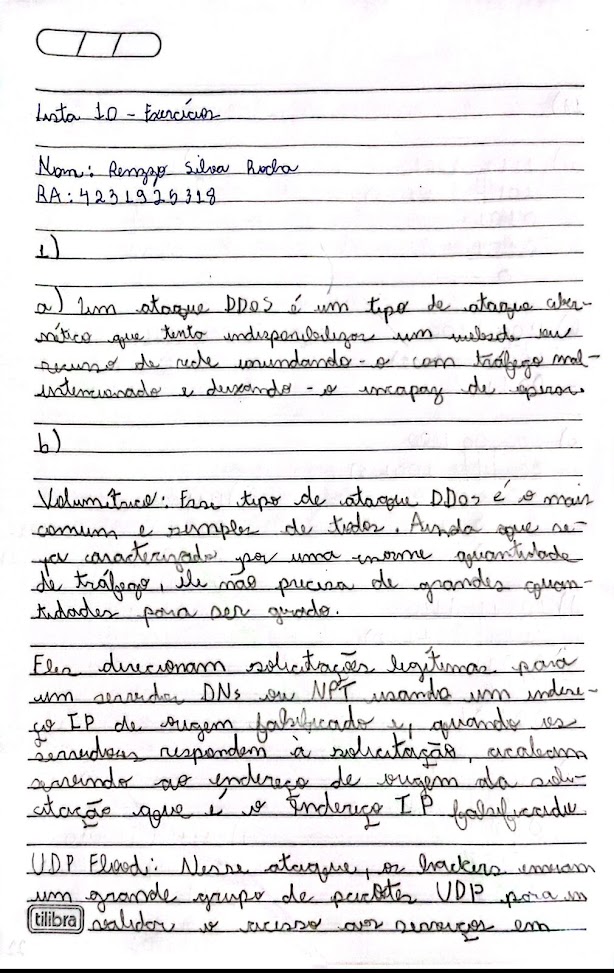 Lista 10 - Exercícios
Nome: Renzzo Silva Rocha
RA: 4231925318
1)
a) Um ataque DDOS é um tipo de ataque ciber-
nético que tenta indisponibilizar um website ou
recurso de rede inundando-o com tráfego mal-
intencionado e deixando-o incapaz de operar.
b)
Volumétrico: Esse tipo de ataque DDos é o mais
comum e simples de todos. Ainda que se-
ja caracterizado por uma enorme quantidade
de tráfego, ele não precisa de grandes quan-
tidades para ser gerado.
Eles direcionam solicitações legítimas para
um servidor DNs ou NPT usando um indere-
ço IP de origem falsificado e, quando os
servidores respondem à solicitação, acabam
ao endereço de origem da soli-
citação que é o Endereço IP falsificado
UDP Flood: Nesse ataque, os hackers enviam
um grande grupo de pacotes UDP para in
validar o acesso aos serviços em
tilibra